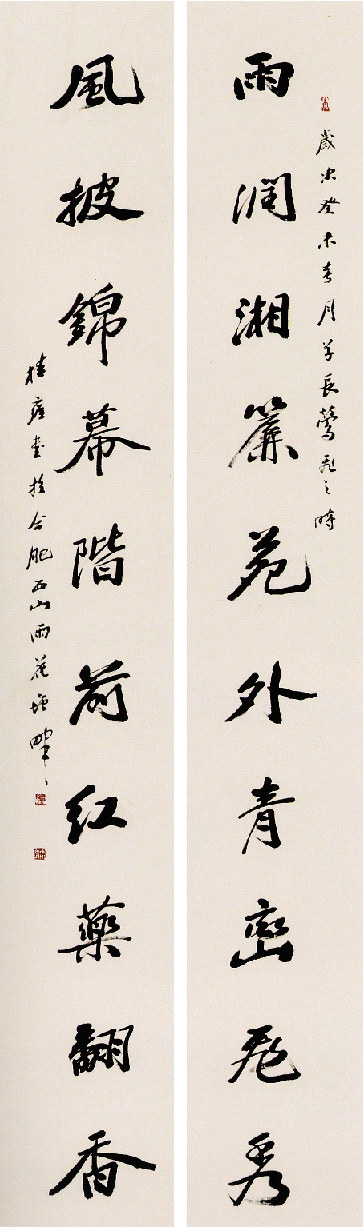 歲次癸未春月草長鶯飛之時
雨潤湘簾苑外青巒飛秀
風披錦幕階前紅藥翻香
桂雍書於合肥西山雨花塘畔